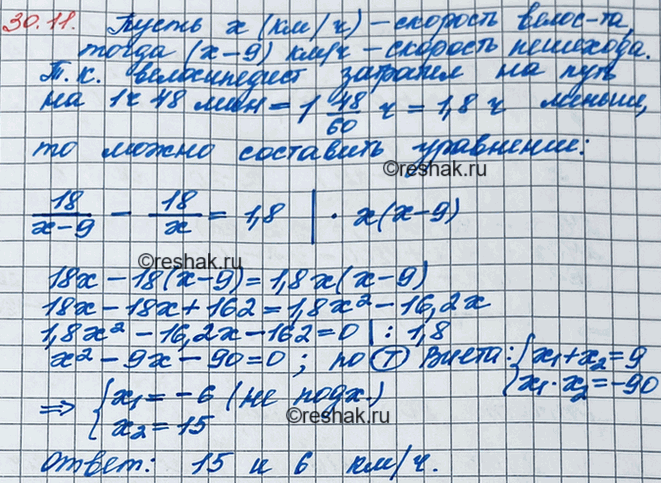 30.11. Пусть x (км/ч) – скорость велос-та,
тогда (x-9) км/ч – скорость пешехода.
Т.к. велосипедист затратил на путь
на 1ч 48 мин = 1 48/60 ч = 1,8 ч меньше,
то можно составить уравнение:
©reshak.ru
18/(x-9) - 18/x = 1,8 | · x(x-9)
©reshak.ru
18x - 18(x-9) = 1,8x(x-9)
18x - 18x + 162 = 1,8x² - 16,2x
1,8x² - 16,2x - 162 = 0 | : 1,8
x² - 9x - 90 = 0 ; по Т Виета: { x₁ + x₂ = 9
x₁ · x₂ = -90
⇒ { x₁ = -6 (не подх.)
x₂ = 15
©reshak.ru
Ответ: 15 и 6 км/ч.